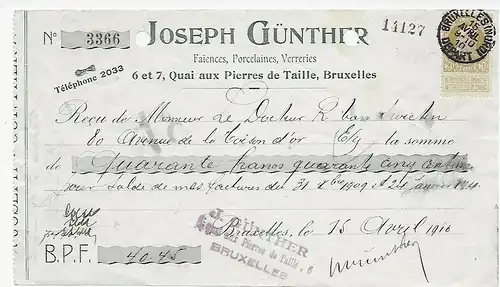 Nº 3366
JOSEPH GÜNTHER
14127
Faïences, Porcelaines, Verreries
Téléphone 2033
6 et 7, Quai aux Pierres de Taille, Bruxelles
BRUXELLES
15 AVRIL
1910
DEPART
Reçu de Monsieur Le Docteur
80 Avenue de la Toison d'or E/V la somme
de quarante francs quarante cinq centm
pour solde de mes factures des 31 Xbre 1909 et 24 janvier 1910
J. GÜNTHER
aux Pierres de Taille, 6
BRUXELLES
Bruxelles, le 15 Avril 1910
B.P.F. 40.45
JGünther